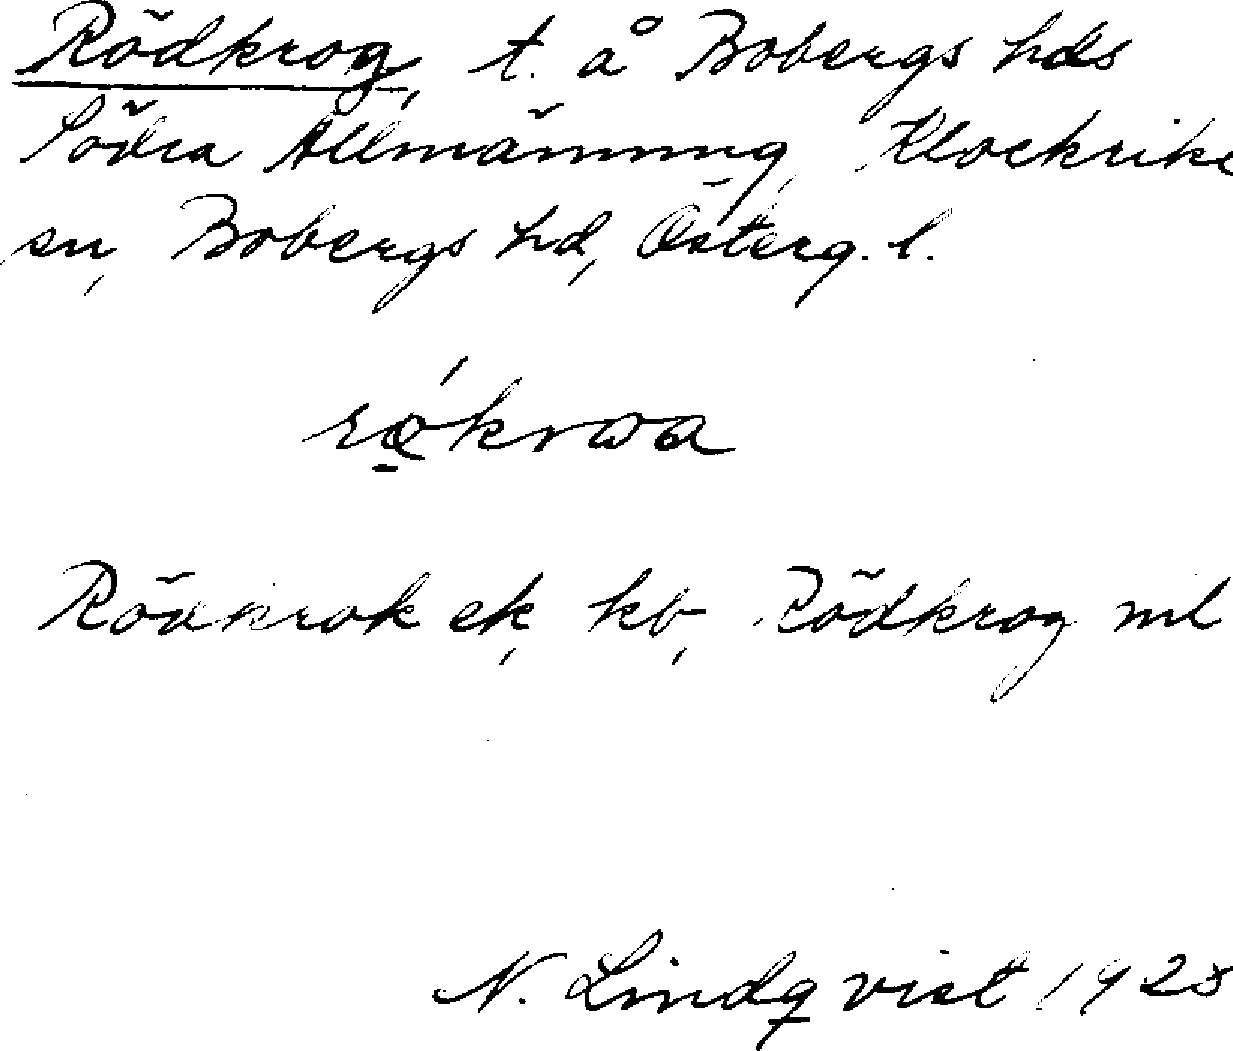 Rödkrog, t. å Bobergs hds
Södra Allmänning, Klockrike
sn, Bobergs hd, Österg. l.
Rödkrok ek, kb, Rödkrog ml
N. Lindqvist